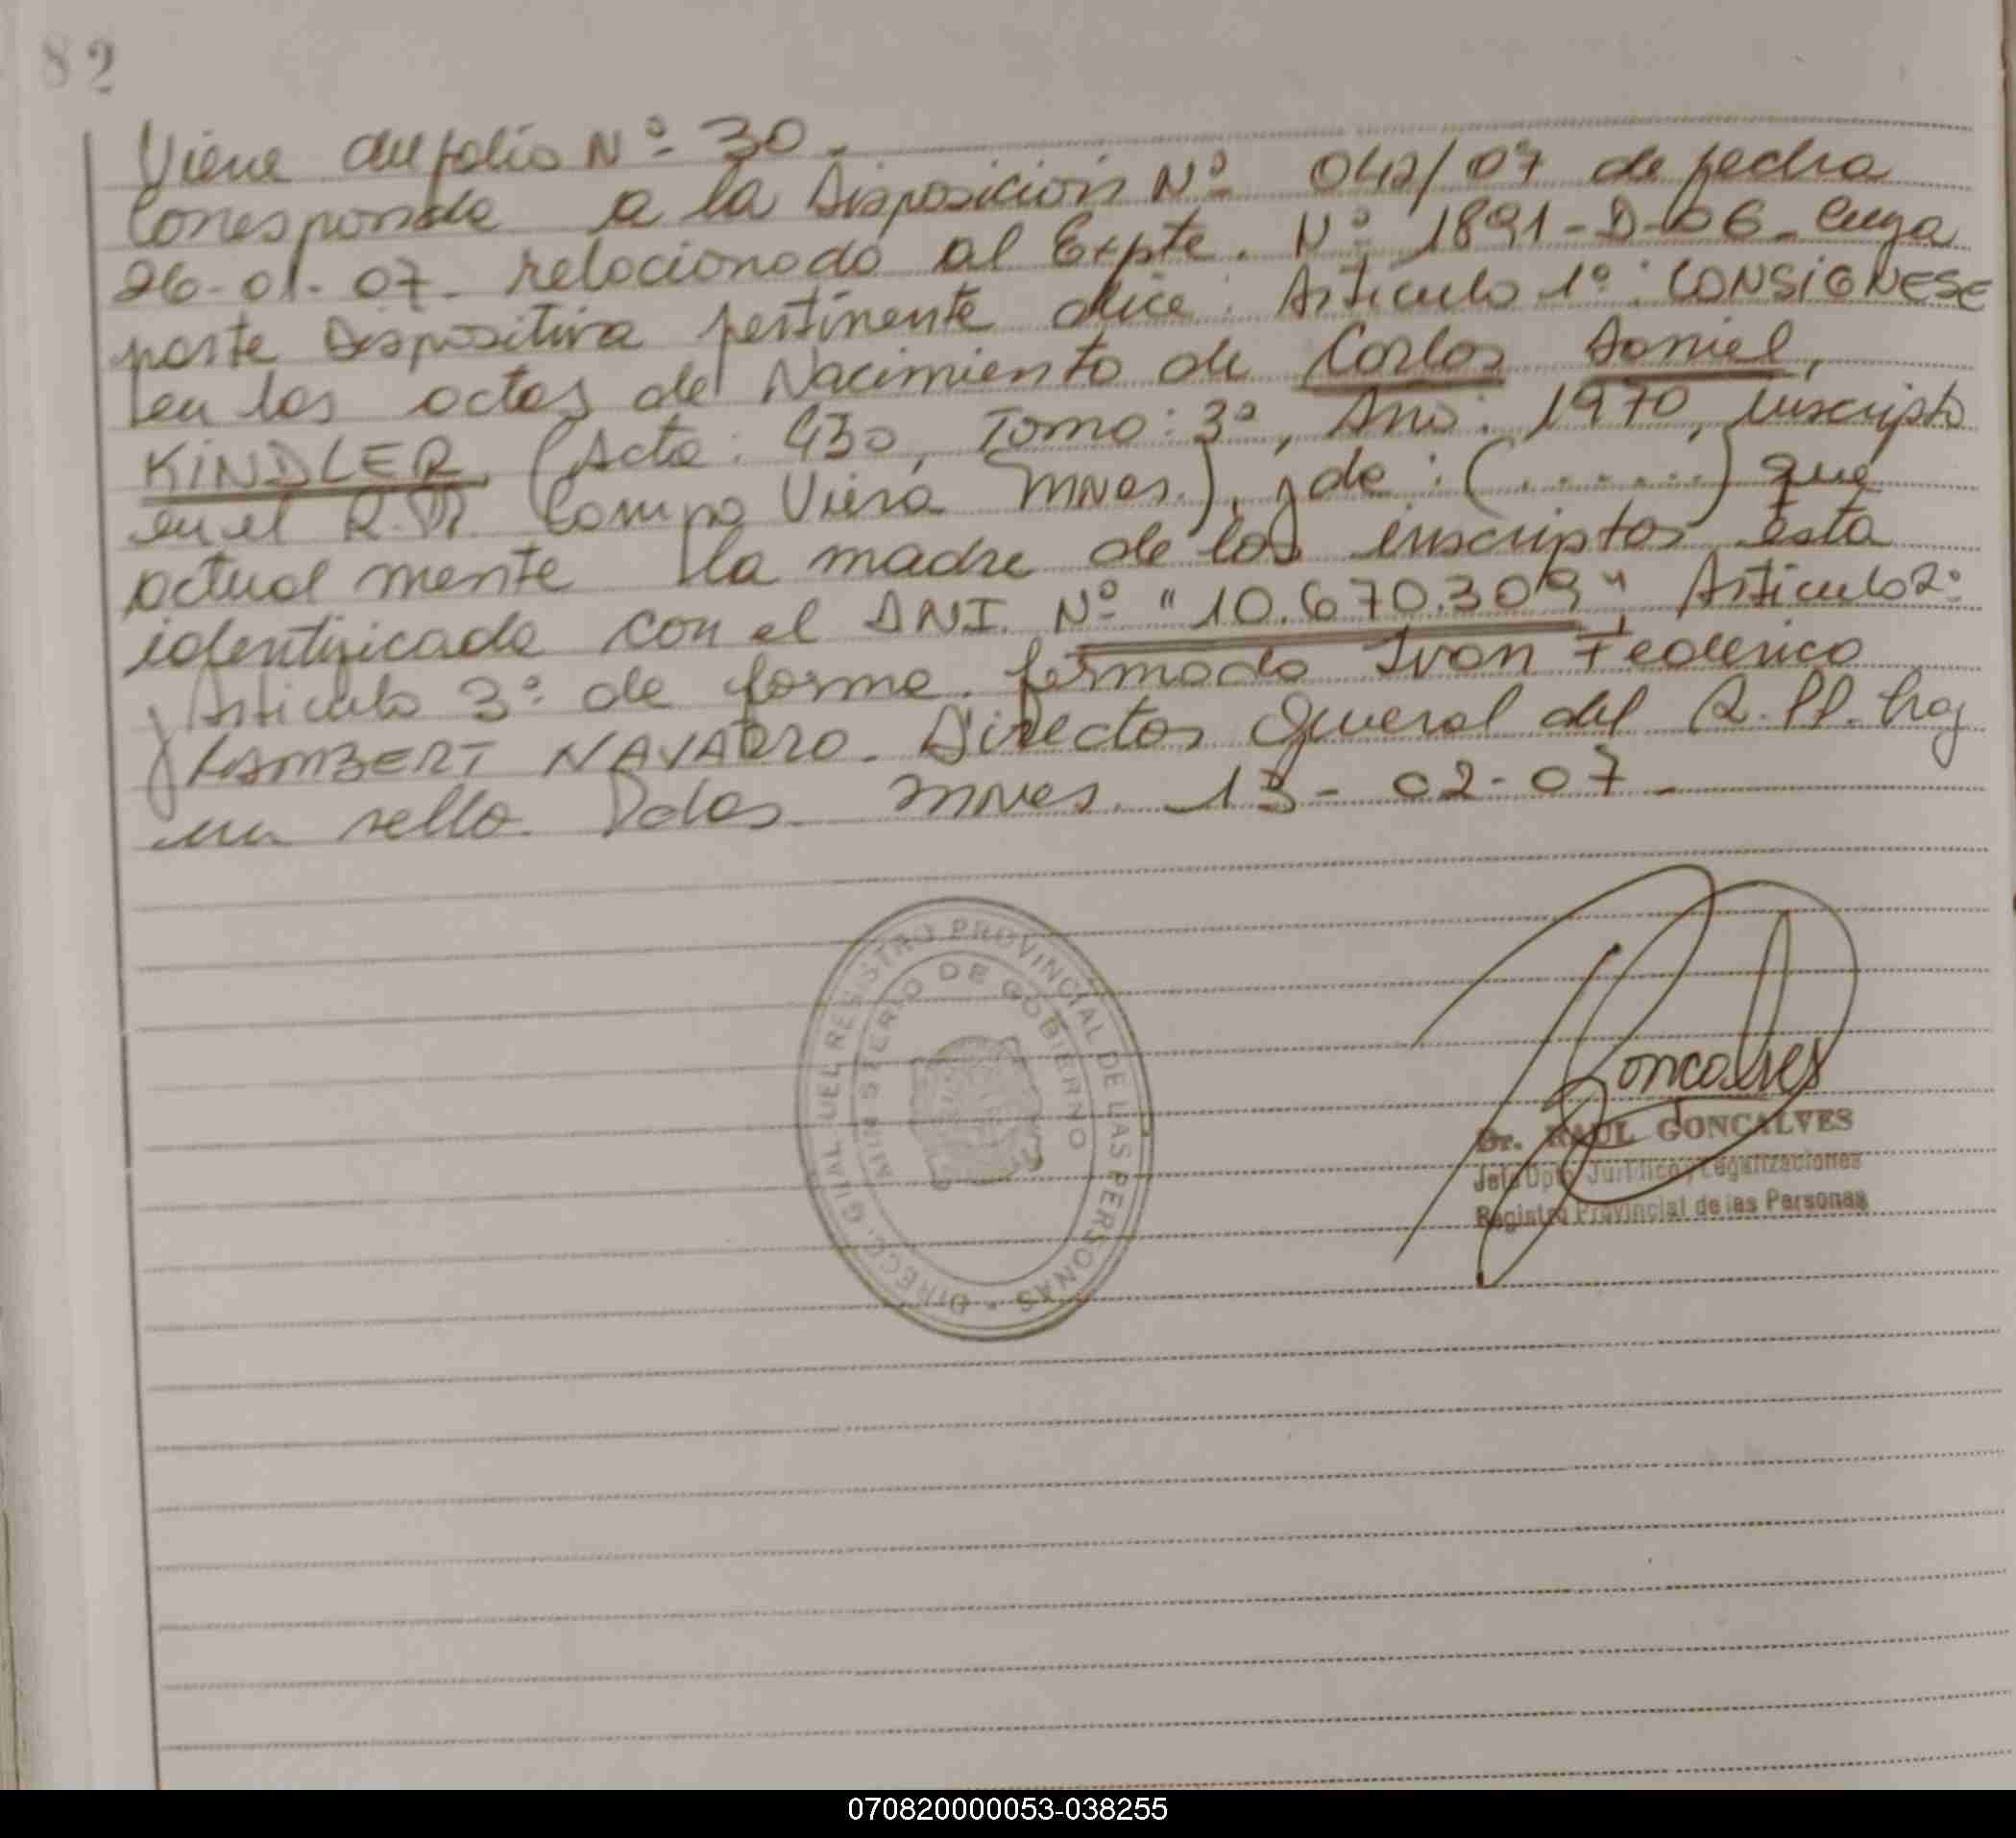 82
Viene del folio Nº 30.
Corresponde a la Disposición Nº 042/07 de fecha
26-01-07- relacionado al Expte. Nº 1891-D-06- Cuya
parte Dispositiva pertinente dice: Articulo 1º: CONSIGNESE
en las actas de Nacimiento de Carlos Daniel,
KINDLER, (Acta: 430, Tomo: 3º, Año: 1970, inscripto
en el R.P. Campo Viera Mnes.), y de: (.......) que
actualmente la madre de los inscriptos esta
identificada con el DNI. Nº "10.670.309" Articulo 2º
y Articulo 3º de forma. firmado Ivan Federico
LAMBERT NAVARRO. Director General del R.PP. hay
un sello. Pdas. Mnes. 13-02-07-
DIRECC. GRAL DEL REGISTRO PROVINCIAL DE LAS PERSONAS
MINISTERIO DE GOBIERNO
Goncalves
Dr. RAUL GONCALVES
Jefe Dpto Jurídico y Legalizaciones
Registro Provincial de las Personas
070820000053-038255